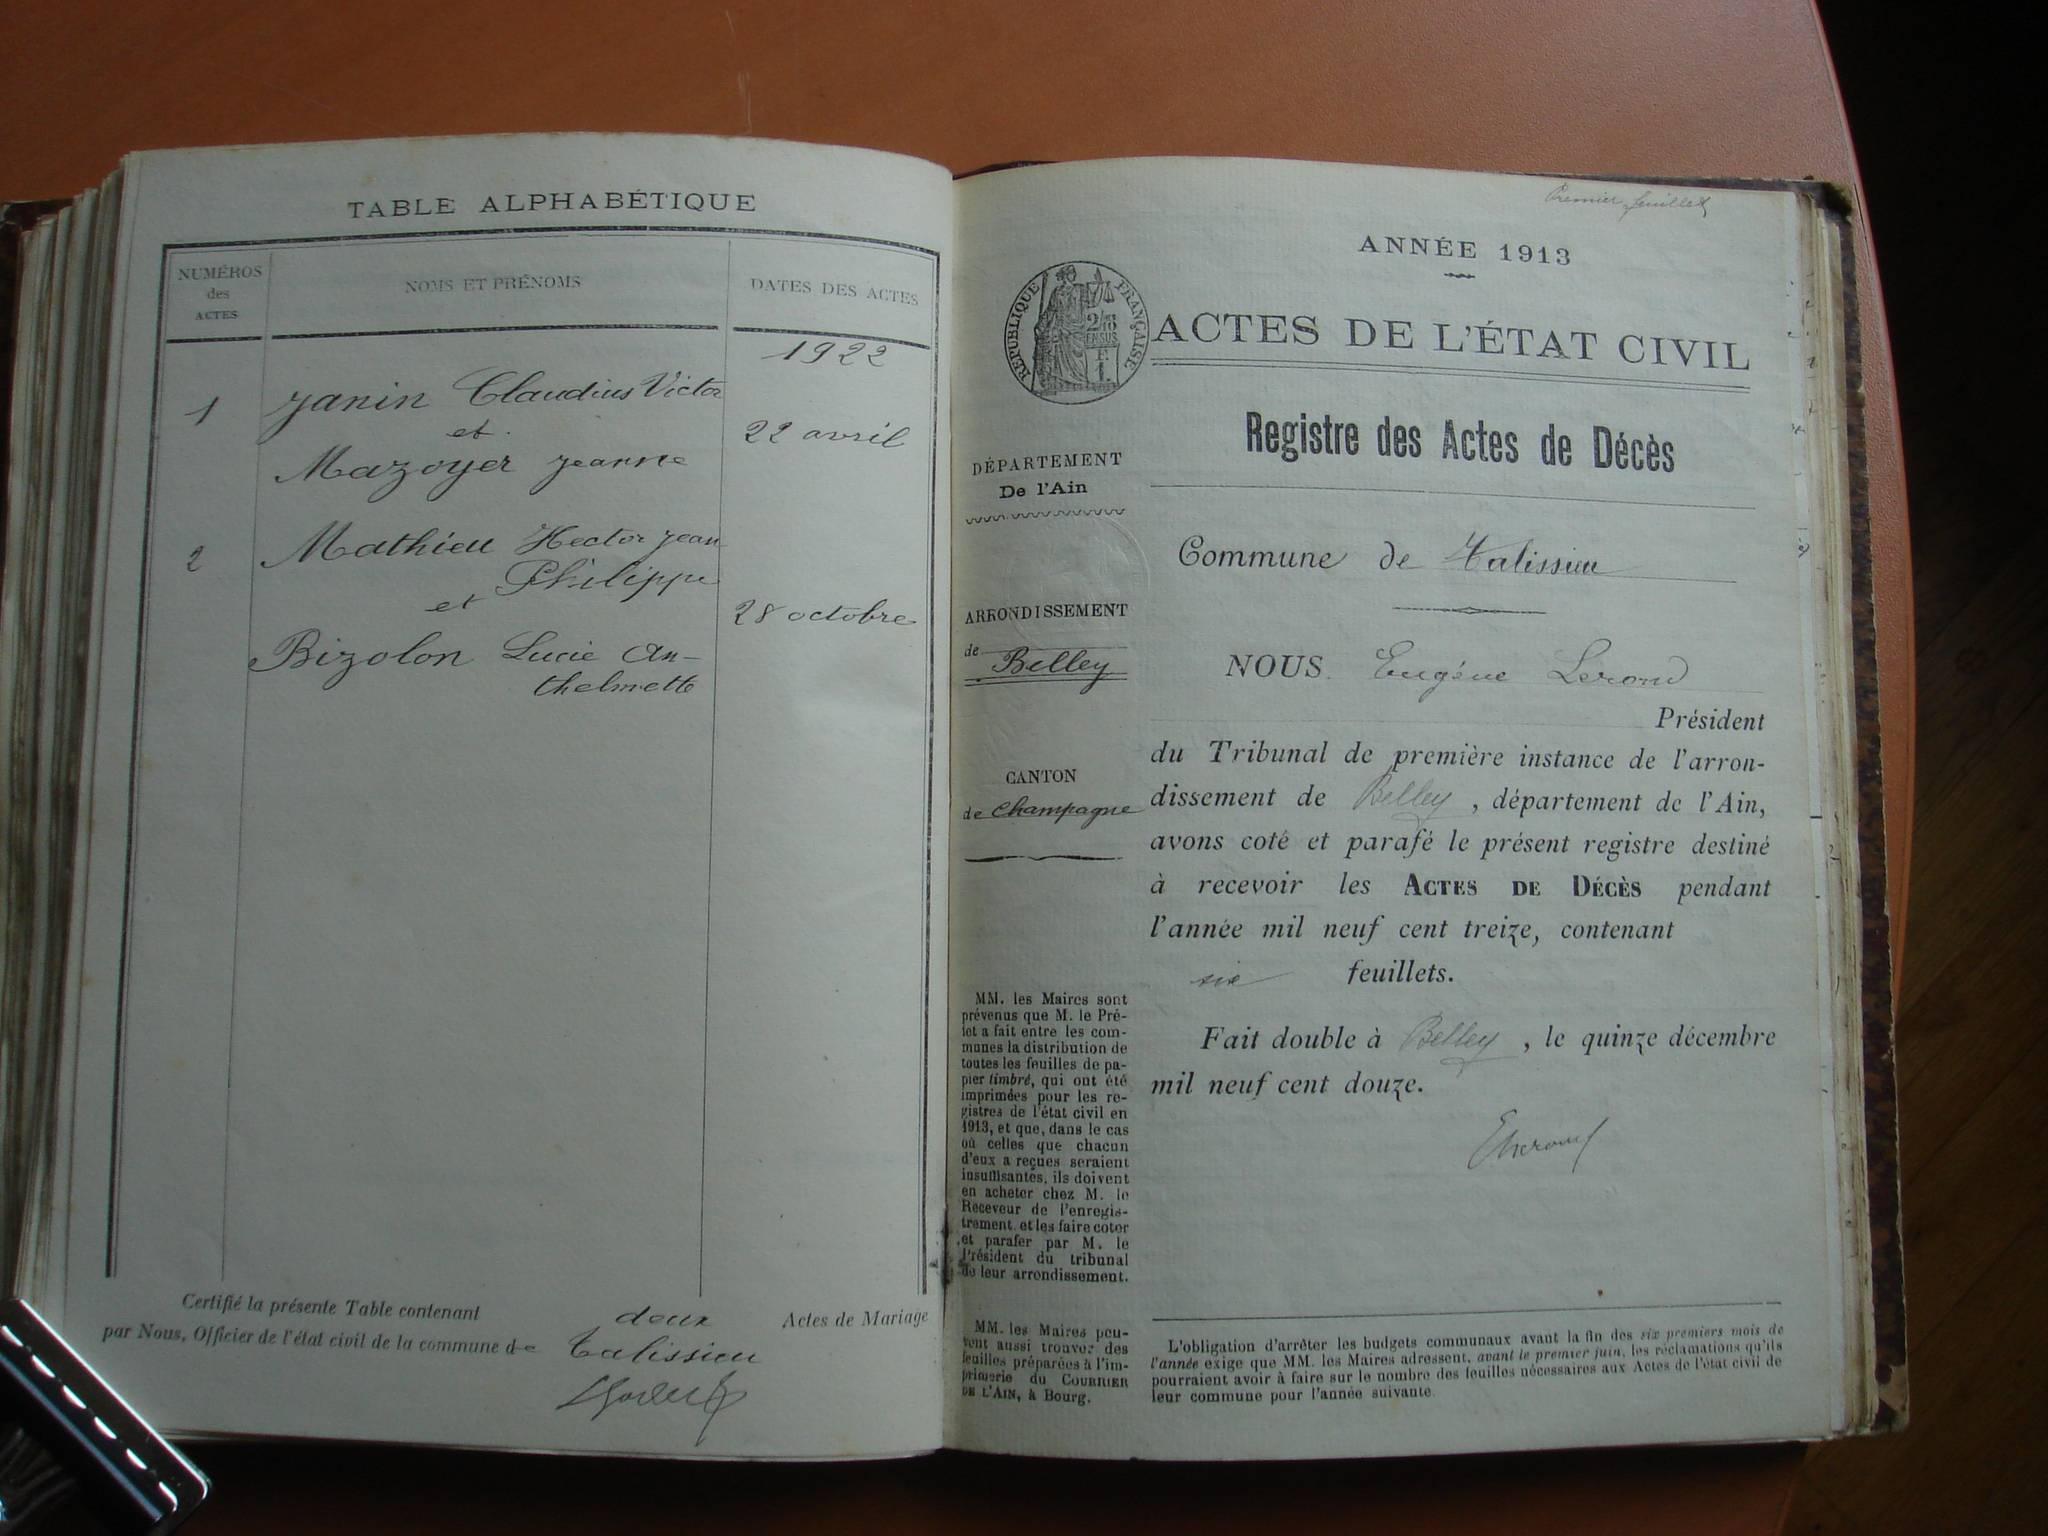 TABLE ALPHABÉTIQUE
NUMÉROS des ACTES
NOMS ET PRÉNOMS
DATES DES ACTES
1922
1
Janin Claudius Victor
et
22 avril
Mazoyer Jeanne
2
Mathieu Hector Jean
Philippe
et
28 octobre
Bizolon Lucie An-
thelmette
Certifié la présente Table contenant deux Actes de Mariage
par Nous, Officier de l'état civil de la commune de Talissieu
Premier feuillet
ANNÉE 1913
RÉPUBLIQUE FRANÇAISE
ACTES DE L'ÉTAT CIVIL
Registre des Actes de Décès
DÉPARTEMENT
De l'Ain
Commune de Talissieu
ARRONDISSEMENT
de Belley
CANTON
de Champagne
NOUS Eugène Lerond
Président
du Tribunal de première instance de l'arron-
dissement de Belley, département de l'Ain,
avons coté et parafé le présent registre destiné
à recevoir les ACTES DE DÉCÈS pendant
l'année mil neuf cent treize, contenant
six feuillets.
Fait double à Belley, le quinze décembre
mil neuf cent douze.
MM. les Maires sont
prévenus que M. le Pré-
fet a fait entre les com-
munes la distribution de
toutes les feuilles de pa-
pier timbré, qui ont été
imprimées pour les re-
gistres de l'état civil en
1913, et que, dans le cas
où celles que chacun
d'eux a reçues seraient
insuffisantes, ils doivent
en acheter chez M. le
Receveur de l'enregis-
trement et les faire coter
et parafer par M. le
Président du tribunal
de leur arrondissement.
MM. les Maires peu-
vent aussi trouver des
feuilles préparées à l'im-
primerie du COURRIER
DE L'AIN, à Bourg.
L'obligation d'arrêter les budgets communaux avant la fin des six premiers mois de
l'année exige que MM. les Maires adressent, avant le premier juin, les réclamations qu'ils
pourraient avoir à faire sur le nombre des feuilles nécessaires aux Actes de l'état civil de
leur commune pour l'année suivante.